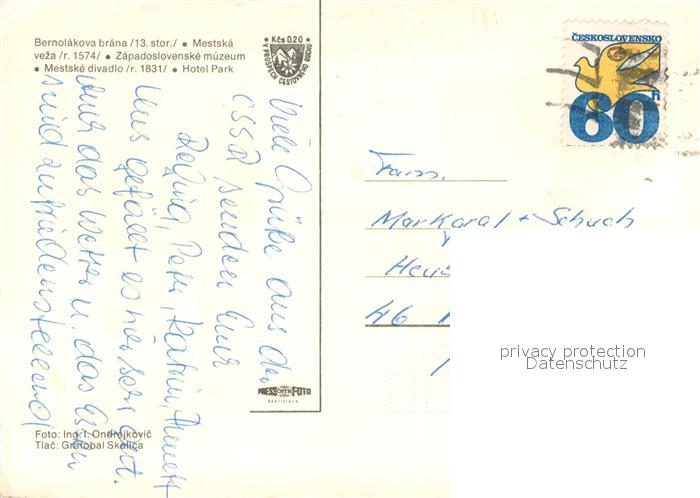 Bernolákova brána /13. stor./ • Mestská
veža /r. 1574/ • Západoslovenské múzeum
• Mestské divadlo /r. 1831/ • Hotel Park
Kčs 0.20
V PROSPECH CESTOVNÉHO RUCHU
ČESKOSLOVENSKO
60 h
Viele Grüße aus der
CSSR senden Euch
Regina, Peter, Katrin, Annett
Uns gefällt es hier sehr gut.
und das Wetter u. das Essen
sind zufriedenstellend!
Fam.
Markgraf + Schuch
46
privacy protection
Datenschutz
PRESSFOTO
BRATISLAVA
Foto: Ing. I. Ondrejkovič
Tlač: Grafobal Skalica